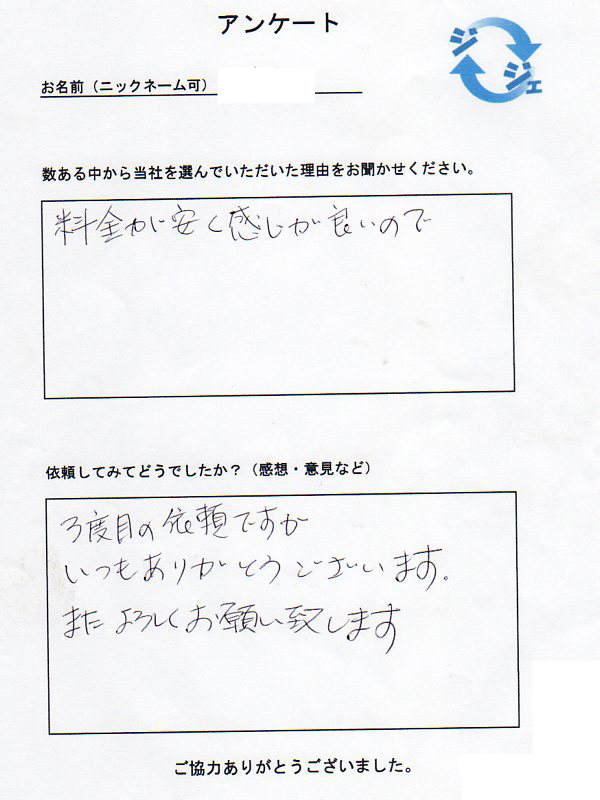 アンケート
ジジェ
お名前（ニックネーム可）
数ある中から当社を選んでいただいた理由をお聞かせください。
料金が安く感じが良いので
依頼してみてどうでしたか？（感想・意見など）
3度目の依頼ですが
いつもありがとうございます。
また よろしくお願い致します
ご協力ありがとうございました。